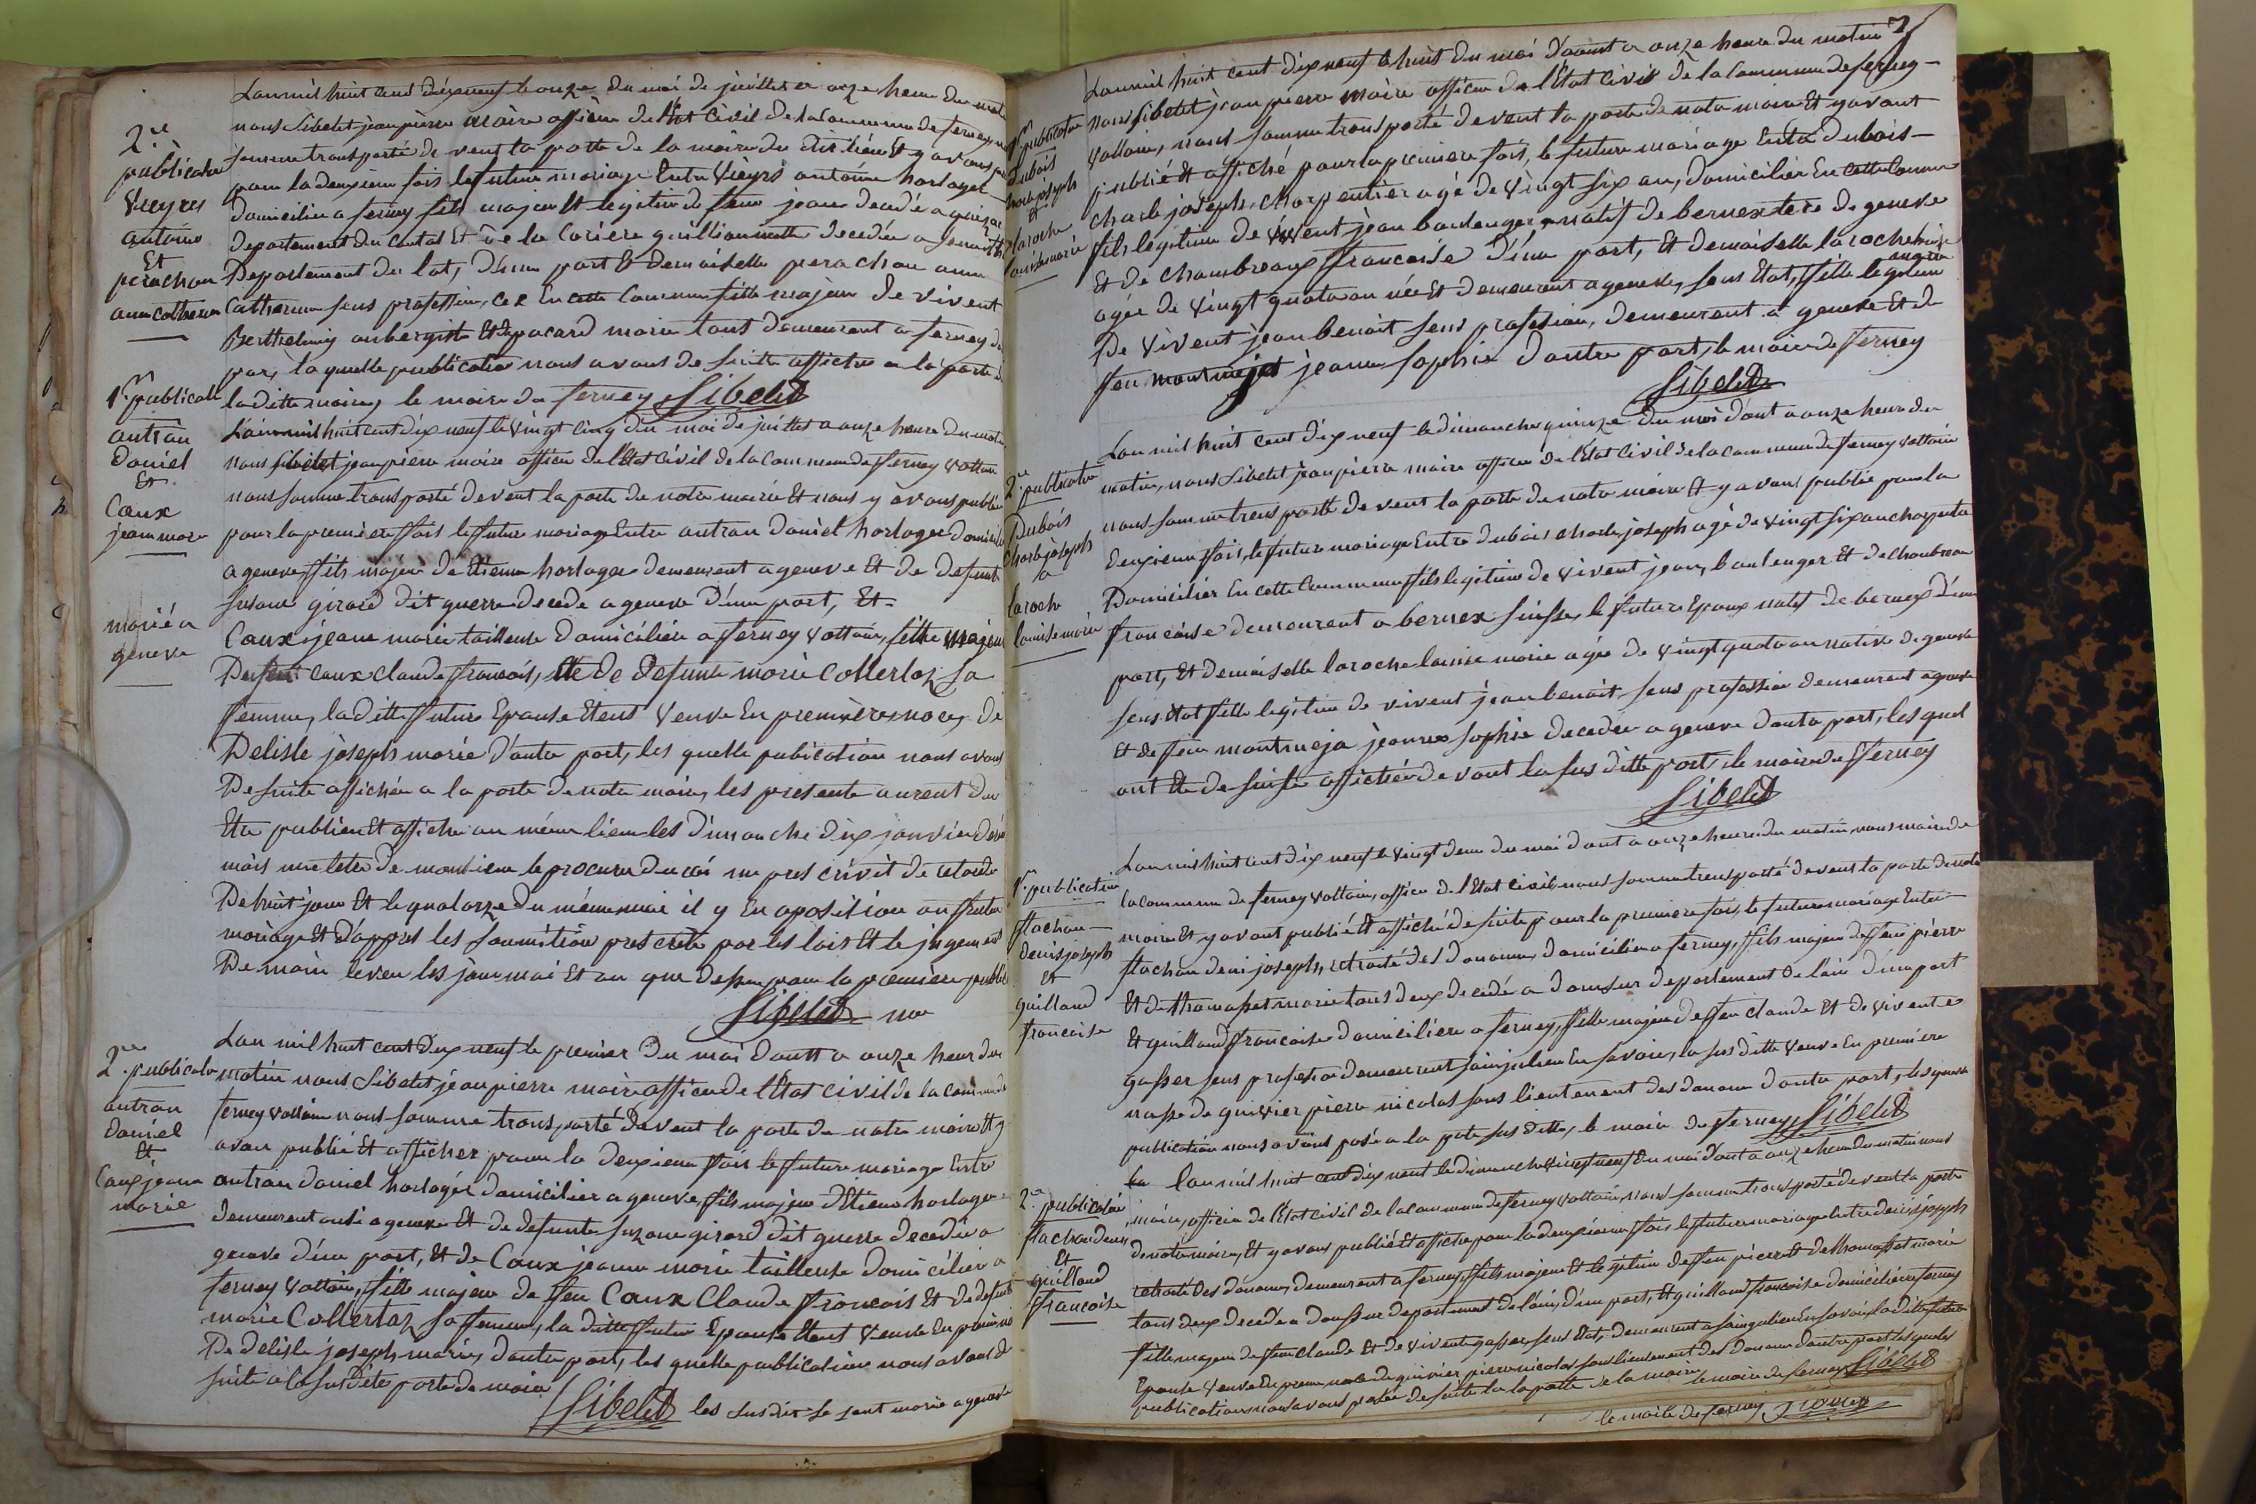 2.e
publication
Vieyres
antoine
Et
perachon
anne catherine
L'an mil huit cent dixneuf le onze du moi de juillet a onze heure du matin
nous Sibelet jean pierre maire officier de l'Etat Civil de la Commune de ferney
somme transporté de vent la porte de la mairie du dit lieu Et y avons
pour la deuxieme fois le future mariage Entre Vieyres antoine horloger
domicilier a ferney fils majeur Et legitime de feu jean decedé a
departement du Cantal Et de la guillianmette decedée a
Departement du lot, d'une part & demoiselle perachon anne
Catherine sens profession, en cette Commune fille majeur de vivent
Berthelemy aubergiste Et de pacard marie tous demeurent a ferney
par, la quelle publication nous avons de suite affiché a la porte
la ditte mairie, le maire de ferney Sibelet
1.er publication
autran
Daniel
Et
Caux
jeanne marie
marié a
geneve
L'an mil huit cent dix neuf le vingt cinq du moi de juillet a onze heure du matin
nous Sibelet jean pierre maire officier de l'Etat Civil de la Commune de ferney voltaire
nous somme transporté devent la porte de notre mairie Et nous y avons publié
pour la premiere fois le future mariage Entre autran Daniel horloger domicilié
a geneve, fils majeur de Etienne horloger demeurent a geneve Et de defunte
susane girard dit guerre decede a geneve d'une part, Et
Caux jeanne marie tailleuse domiciliée a ferney voltaire, fille majeur
Defeu Caux Claude francois, Et de defunte marie Collerlaz sa
femme, la ditte future Epouse Etent veuve En premiere noce, de
Delisle joseph marie d'autre part, les quelle publication nous avons
De suite affichée a la porte de notre mairie, les presente aurent du
Etre publier Et affiche au même lieu les dimanche dix janvier
mais une letre de monsieur le procureur du roi me prescrivit de retarder
De huit jour Et le quatorze du même moi il y Eu oposition au future
mariage Et d'apprès les prescrite par les lois Et le jugement
De main levée les jour moi Et an que dessu pour la premiere publi
Sibelet
2.e publication
autran
Daniel
Et
Caux jeanne
marie
L'an mil huit cent dix neuf le premier du moi d'autt a onze heur du
matin nous Sibelet jean pierre maire officier de l'Etat civil de la commune de
ferney voltaire nous somme transporté devent la porte de notre mairie Et y
avon publié Et afficher pour la deuxieme fois le future mariage Entre
autran daniel horloger domicilier a geneve, fils majeur d'Etienne horloger
demeurent ausi a geneve Et de defunte suzane girard dit guerre decedée a
geneve d'une part, Et de Caux jeanne marie tailleuse domicilier a
ferney voltaire, fille majeur de feu Caux Claude francois Et de defunte
marie Collerlaz sa femme, la ditte future Epouse Etent veuve En premiere
De delisle joseph marie, d'autre part, les quelle publication nous avons de
suite a la susdite porte de mairie
Sibelet les susdit se sont marié a geneve
7
1.er publication
dubois
charle joseph
Et
laroche
louise marie
L'an mil huit cent dix neuf le huit du moi d'aout a onze heure du matin
nous Sibelet jean pierre maire officier de l'Etat Civil de la Commune de ferney
voltaire, nous somme transporté devent la porte de notre mairie Et y avont
publié Et affiché pour la premiere fois, le future mariage Entre dubois
charle joseph, charpentier agé de vingt six an, domicilier En cette Commune
fils legitime de vivent jean boulenger, natif de bernex tere de geneve
Et de Chambreaux francoise d'une part, Et demoiselle laroche louise
marie
agée de vingt quatre an née Et demeurent a geneve, sens Etat, fille legitime
De vivent jean benoit sens profession, demeurent a geneve Et de
feu jeanne sophie d'autre part, le maire de ferney
Sibelet
2.e publication
Dubois
Charle joseph
a
laroche
louise marie
L'an mil huit cent dix neuf le dimanche quinze du moi d'aout a onze heure du
matin, nous Sibelet jean pierre maire officier de l'Etat Civil de la commune de ferney voltaire
nous somme trensporté de vent la porte de notre mairie Et y avons publié pour la
deuxieme fois, le future mariage Entre dubois charle joseph agé de vingt six an charpentier
Domicilier En cette Commune fils legitime de vivent jean, boulenger Et de Chambreau
francoise demeurent a bernex suisse, le future Epoux natif de bernex d'une
part, Et demoiselle laroche louise marie agée de vingt quatre an native de geneve
sens Etat fille legitime de vivent jean benoit sens profession demeurent a geneve
Et de feu montrueja jeanne sophie decedée a geneve d'autre part, les quel
ont Ete de suite affichée devant la sus ditte porte le maire de ferney
Sibelet
1.er publication
flachon
denis joseph
Et
guilland
francoise
L'an mil huit cent dix neuf le vingt deux du moi d'aout a onze heure du matin nous maire de
la commune de ferney voltaire, officier de l'Etat Civil, nous somme trensporté devent la porte de notre
mairie Et y avont publié Et affiché de suite pour la premiere fois, le future mariage Entre
flachon deni joseph, retraité des douanne, domicilier a ferney, fils majeur de feu pierre
Et de thomasset marie tous deux decedé a departement de l'ain d'une part
Et guilland francoise domiciliere a ferney, fille majeur de feu claude Et de vivente
gasser sens profession demeurent sain julien En savoie, la sus ditte veuve En premiere
nosse de quivier pierre nicolas sous lieutenent des douane d'autre part, les quelle
publication nous avons posé a la porte sus ditte, le maire de ferney Sibelet
2.e publication
flachon denis
Et
guilland
francoise
L'an mil huit cent dix neuf le dimanche vingt neuf du moi d'aout a onze heure du matin nous
maire, officier de l'Etat civil de la commune de ferney voltaire, nous somme trensporté devent la porte
de notre mairie, Et y avons publié Et affiche pour la deuxieme fois le future mariage Entre denis joseph
retraité des douane, demeurent a ferney, fils majeur Et legitime de feu pierre Et de thomasset marie
tous deux decedé a departement de l'ain, d'une part, Et guilland francoise domiciliere a ferney
fille majeur de feu claude Et de vivente gasser sens Etat, demeurent a sain julien En savoie, la ditte future
Epouse veuve En preme nosse de quivier pierre nicolas sous lieutenent des douane d'autre part les quelle
publication nous avons posée de suite a la porte de la mairie le maire de ferney Sibelet
le maire de ferney